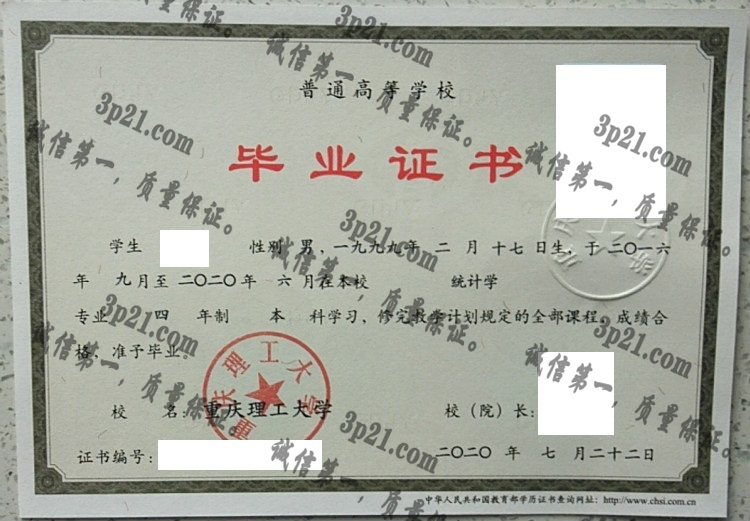 普通高等学校
毕业证书
学生 性别 男，一九九九年 二 月 十七 日生，于 二〇一六
年 九月至 二〇二〇年 六 月在本校 统计学
专业 四 年制 本 科学习，修完教学计划规定的全部课程，成绩合
格，准予毕业。
校 名：重庆理工大学 校（院）长：
证书编号： 二〇二〇 年 七 月二十二日
中华人民共和国教育部学历证书查询网址：http://www.chsi.com.cn
重庆理工大学
3p21.com
诚信第一，质量保证。
3p21.com
诚信第一，质量保证。
3p21.com
诚信第一，质量保证。
3p21.com
诚信第一，质量保证。
3p21.com
诚信第一，质量保证。
3p21.com
诚信第一，质量保证。
3p21.com
诚信第一，质量保证。